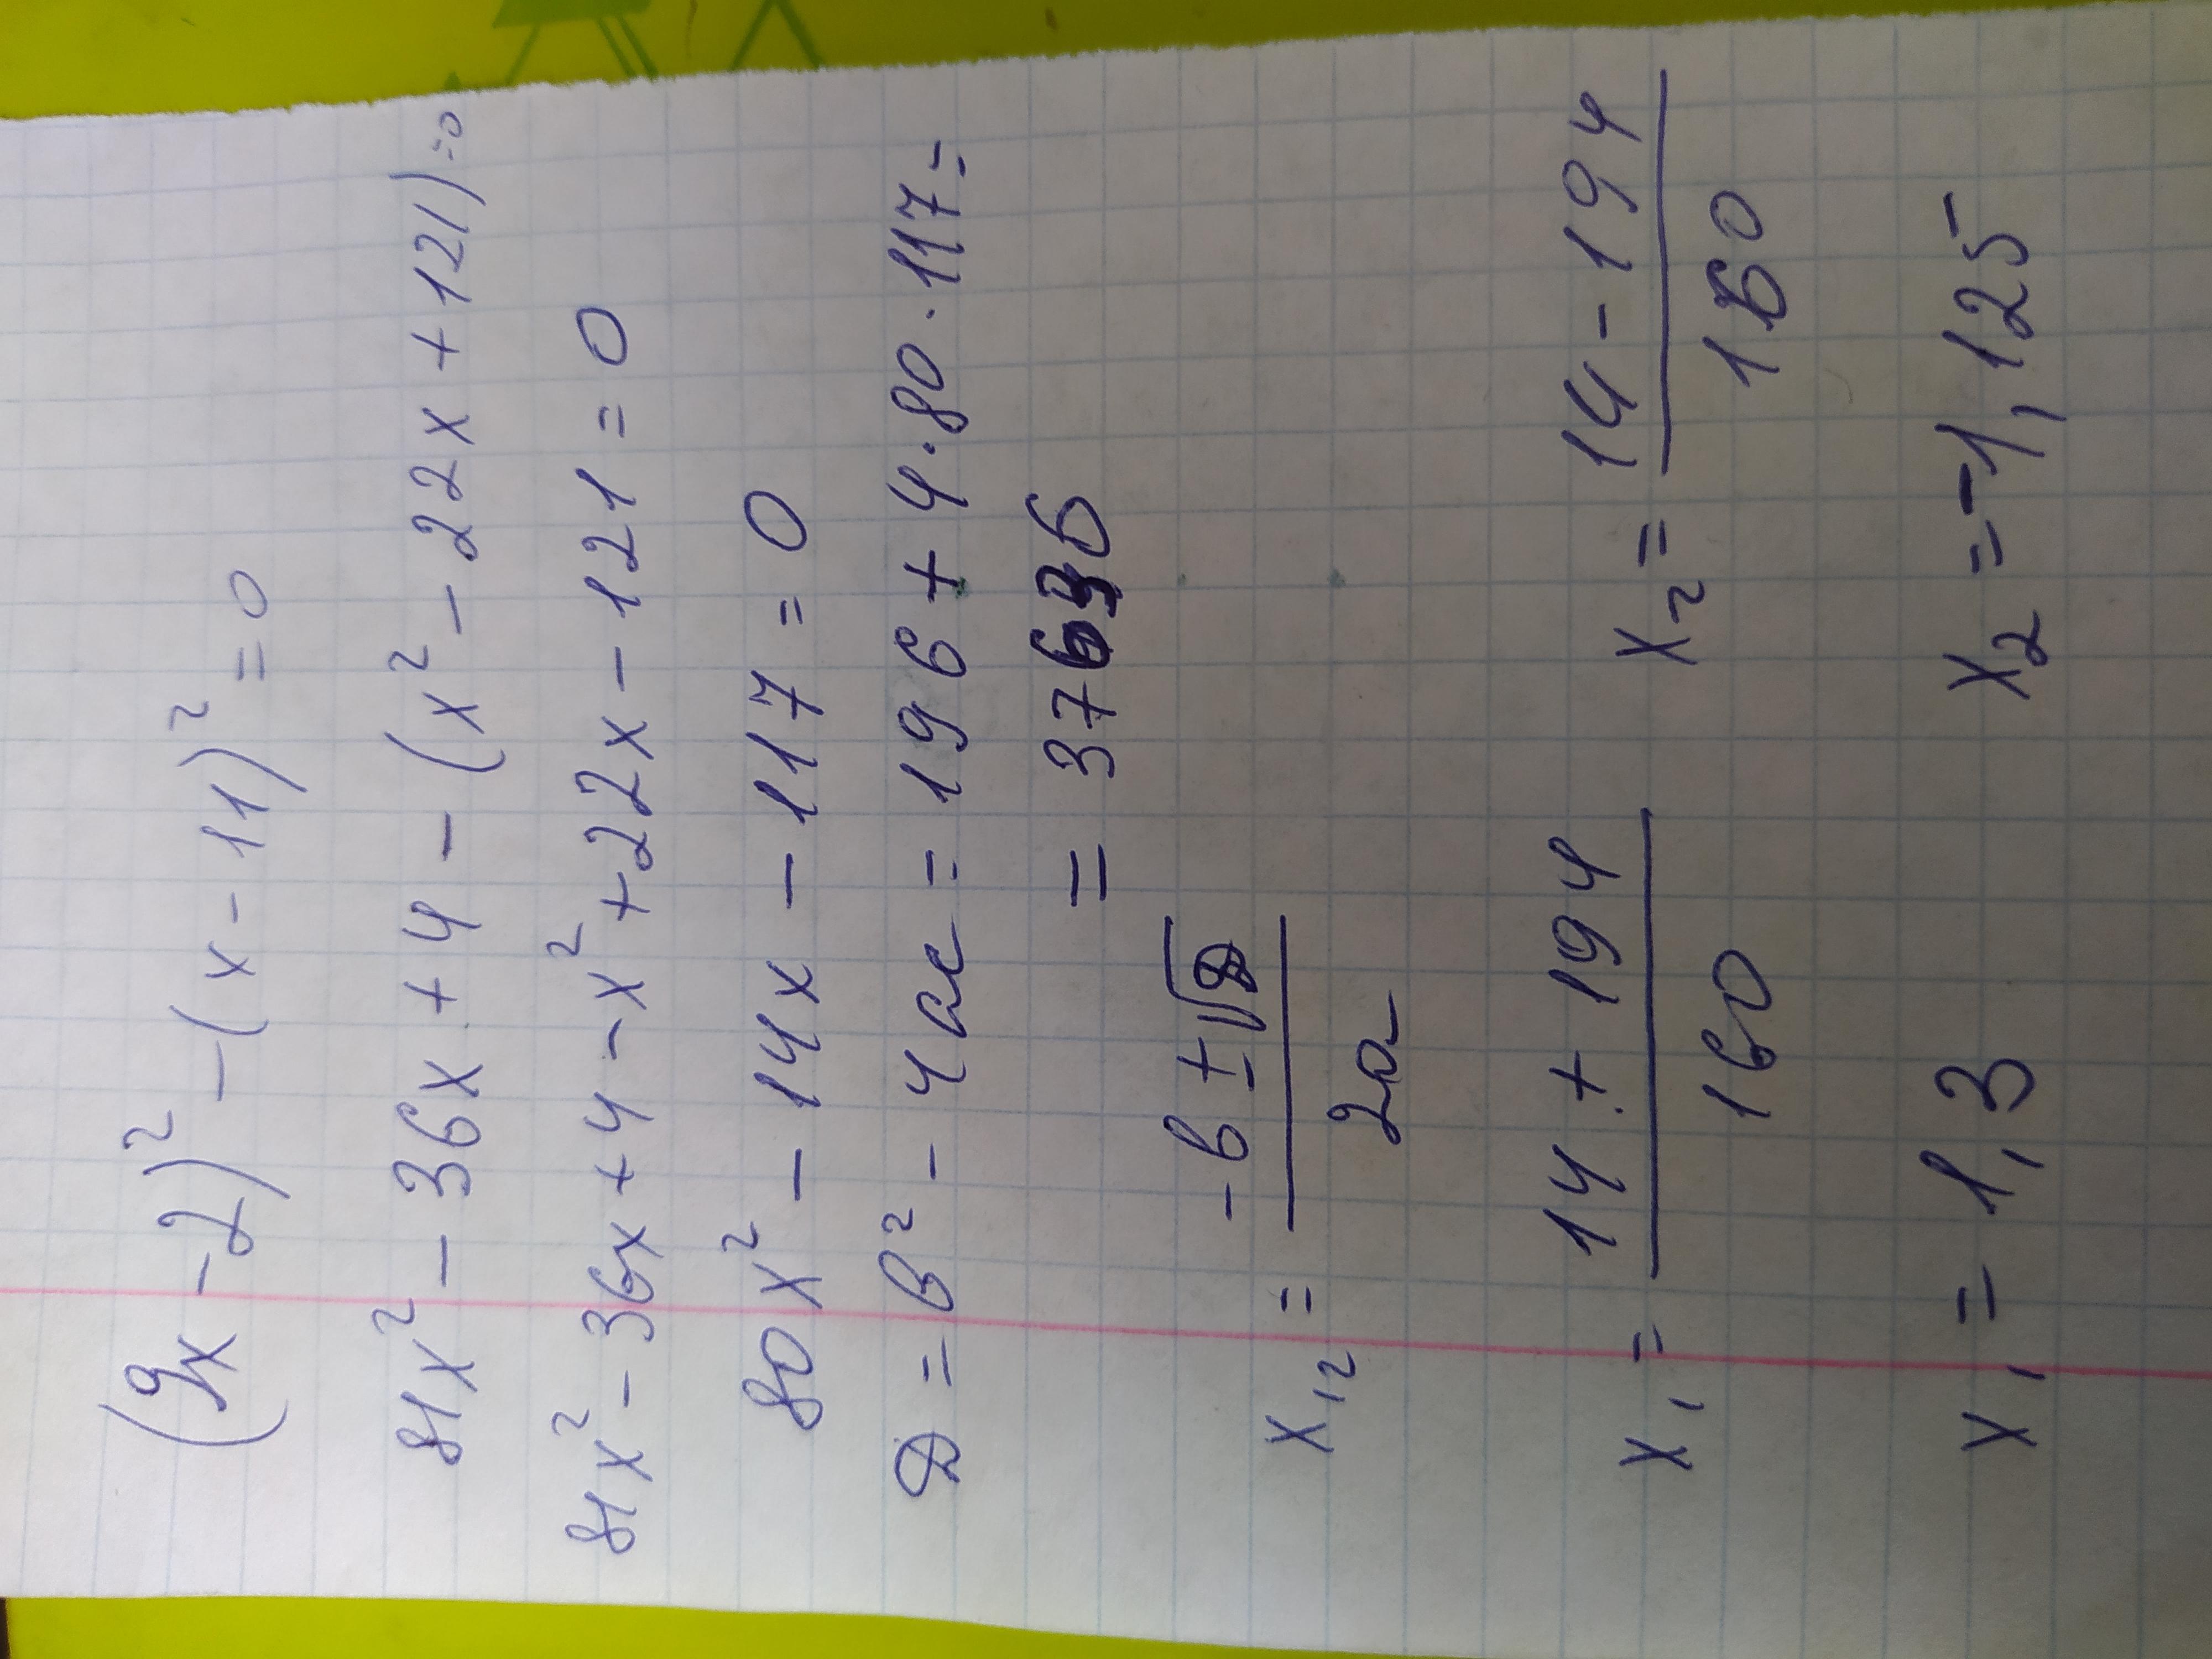 (9x - 2)² - (x - 11)² = 0
81x² - 36x + 4 - (x² - 22x + 121) = 0
81x² - 36x + 4 - x² + 22x - 121 = 0
80x² - 14x - 117 = 0
D = b² - 4ac = 196 + 4·80·117 =
= 37636
x₁₂ = (-b ± √D) / 2a
x₁ = (14 + 194) / 160 x₂ = (14 - 194) / 160
x₁ = 1,3 x₂ = -1,125